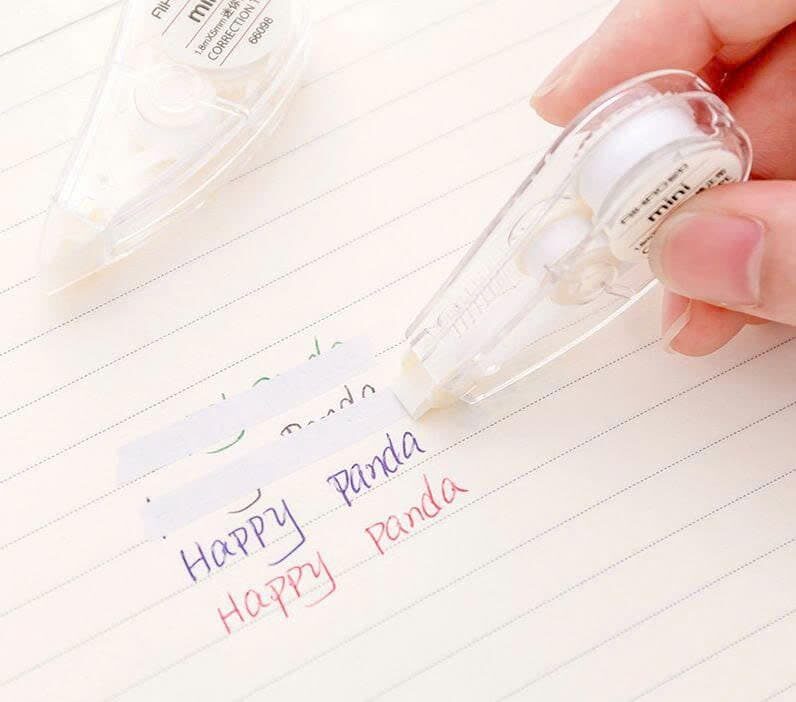 mini
1.8mX5mm迷你
CORRECTION T
66098
mini
Panda
Happy panda
Happy panda